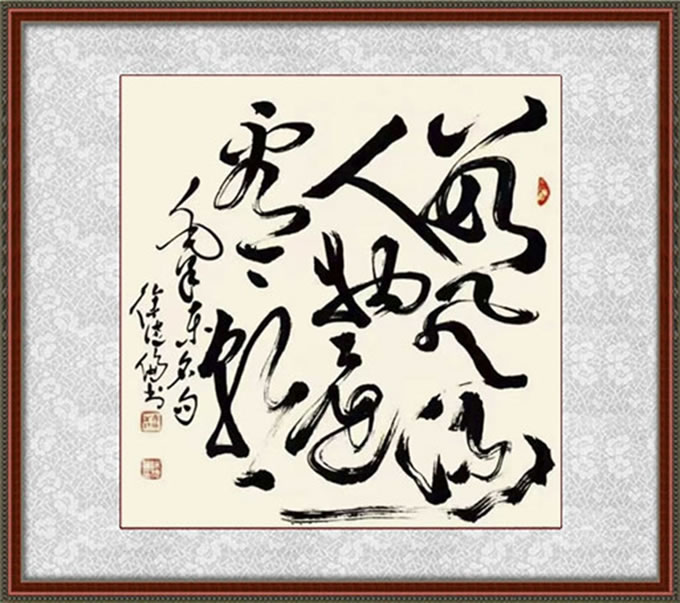 数风流
人物还
看今朝
毛泽东名句
徐 书